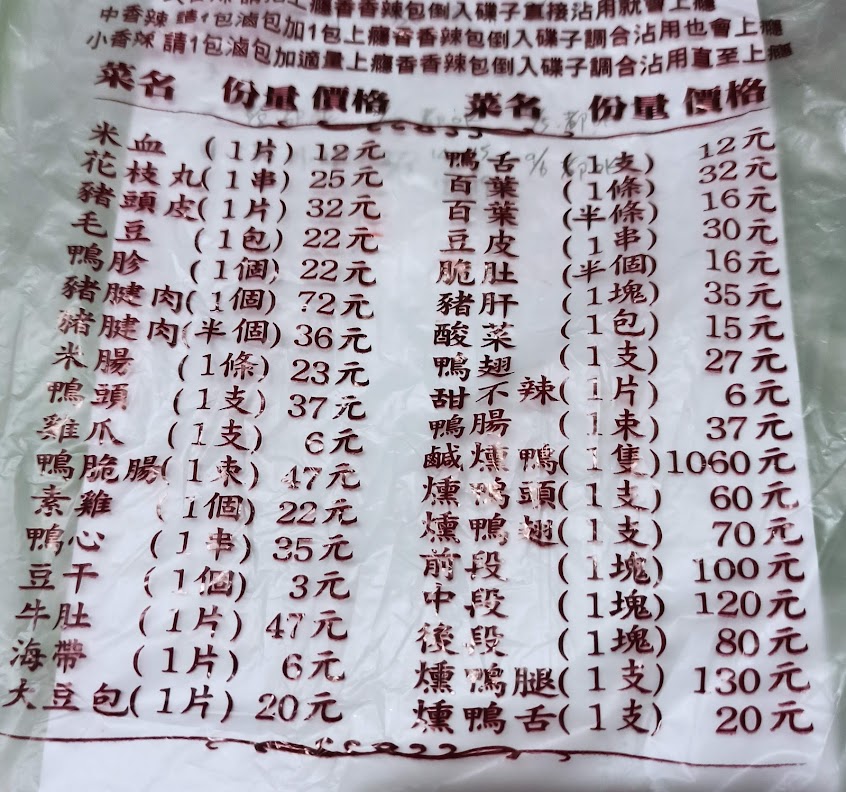 上癮香香辣包倒入碟子直接沾用就會上癮
中香辣 請1包滷包加1包上癮香香辣包倒入碟子調合沾用也會上癮
小香辣 請1包滷包加適量上癮香香辣包倒入碟子調合沾用直至上癮
菜名 份量 價格
米血 (1片) 12元
花枝丸(1串) 25元
豬頭皮(1片) 32元
毛豆 (1包) 22元
鴨胗 (1個) 22元
豬腱肉(1個) 72元
豬腱肉(半個) 36元
米腸 (1條) 23元
鴨頭 (1支) 37元
雞爪 (1支) 6元
鴨脆腸(1束) 47元
素雞 (1個) 22元
鴨心 (1串) 35元
豆干 (1個) 3元
牛肚 (1片) 47元
海帶 (1片) 6元
大豆包(1片) 20元
菜名 份量 價格
鴨舌 (1支) 12元
百葉 (1條) 32元
百葉 (半條) 16元
豆皮 (1串) 30元
脆肚 (半個) 16元
豬肝 (1塊) 35元
酸菜 (1包) 15元
鴨翅 (1支) 27元
甜不辣(1片) 6元
鴨腸 (1束) 37元
鹹燻鴨(1隻) 1060元
燻鴨頭(1支) 60元
燻鴨翅(1支) 70元
前段 (1塊) 100元
中段 (1塊) 120元
後段 (1塊) 80元
燻鴨腿(1支) 130元
燻鴨舌(1支) 20元